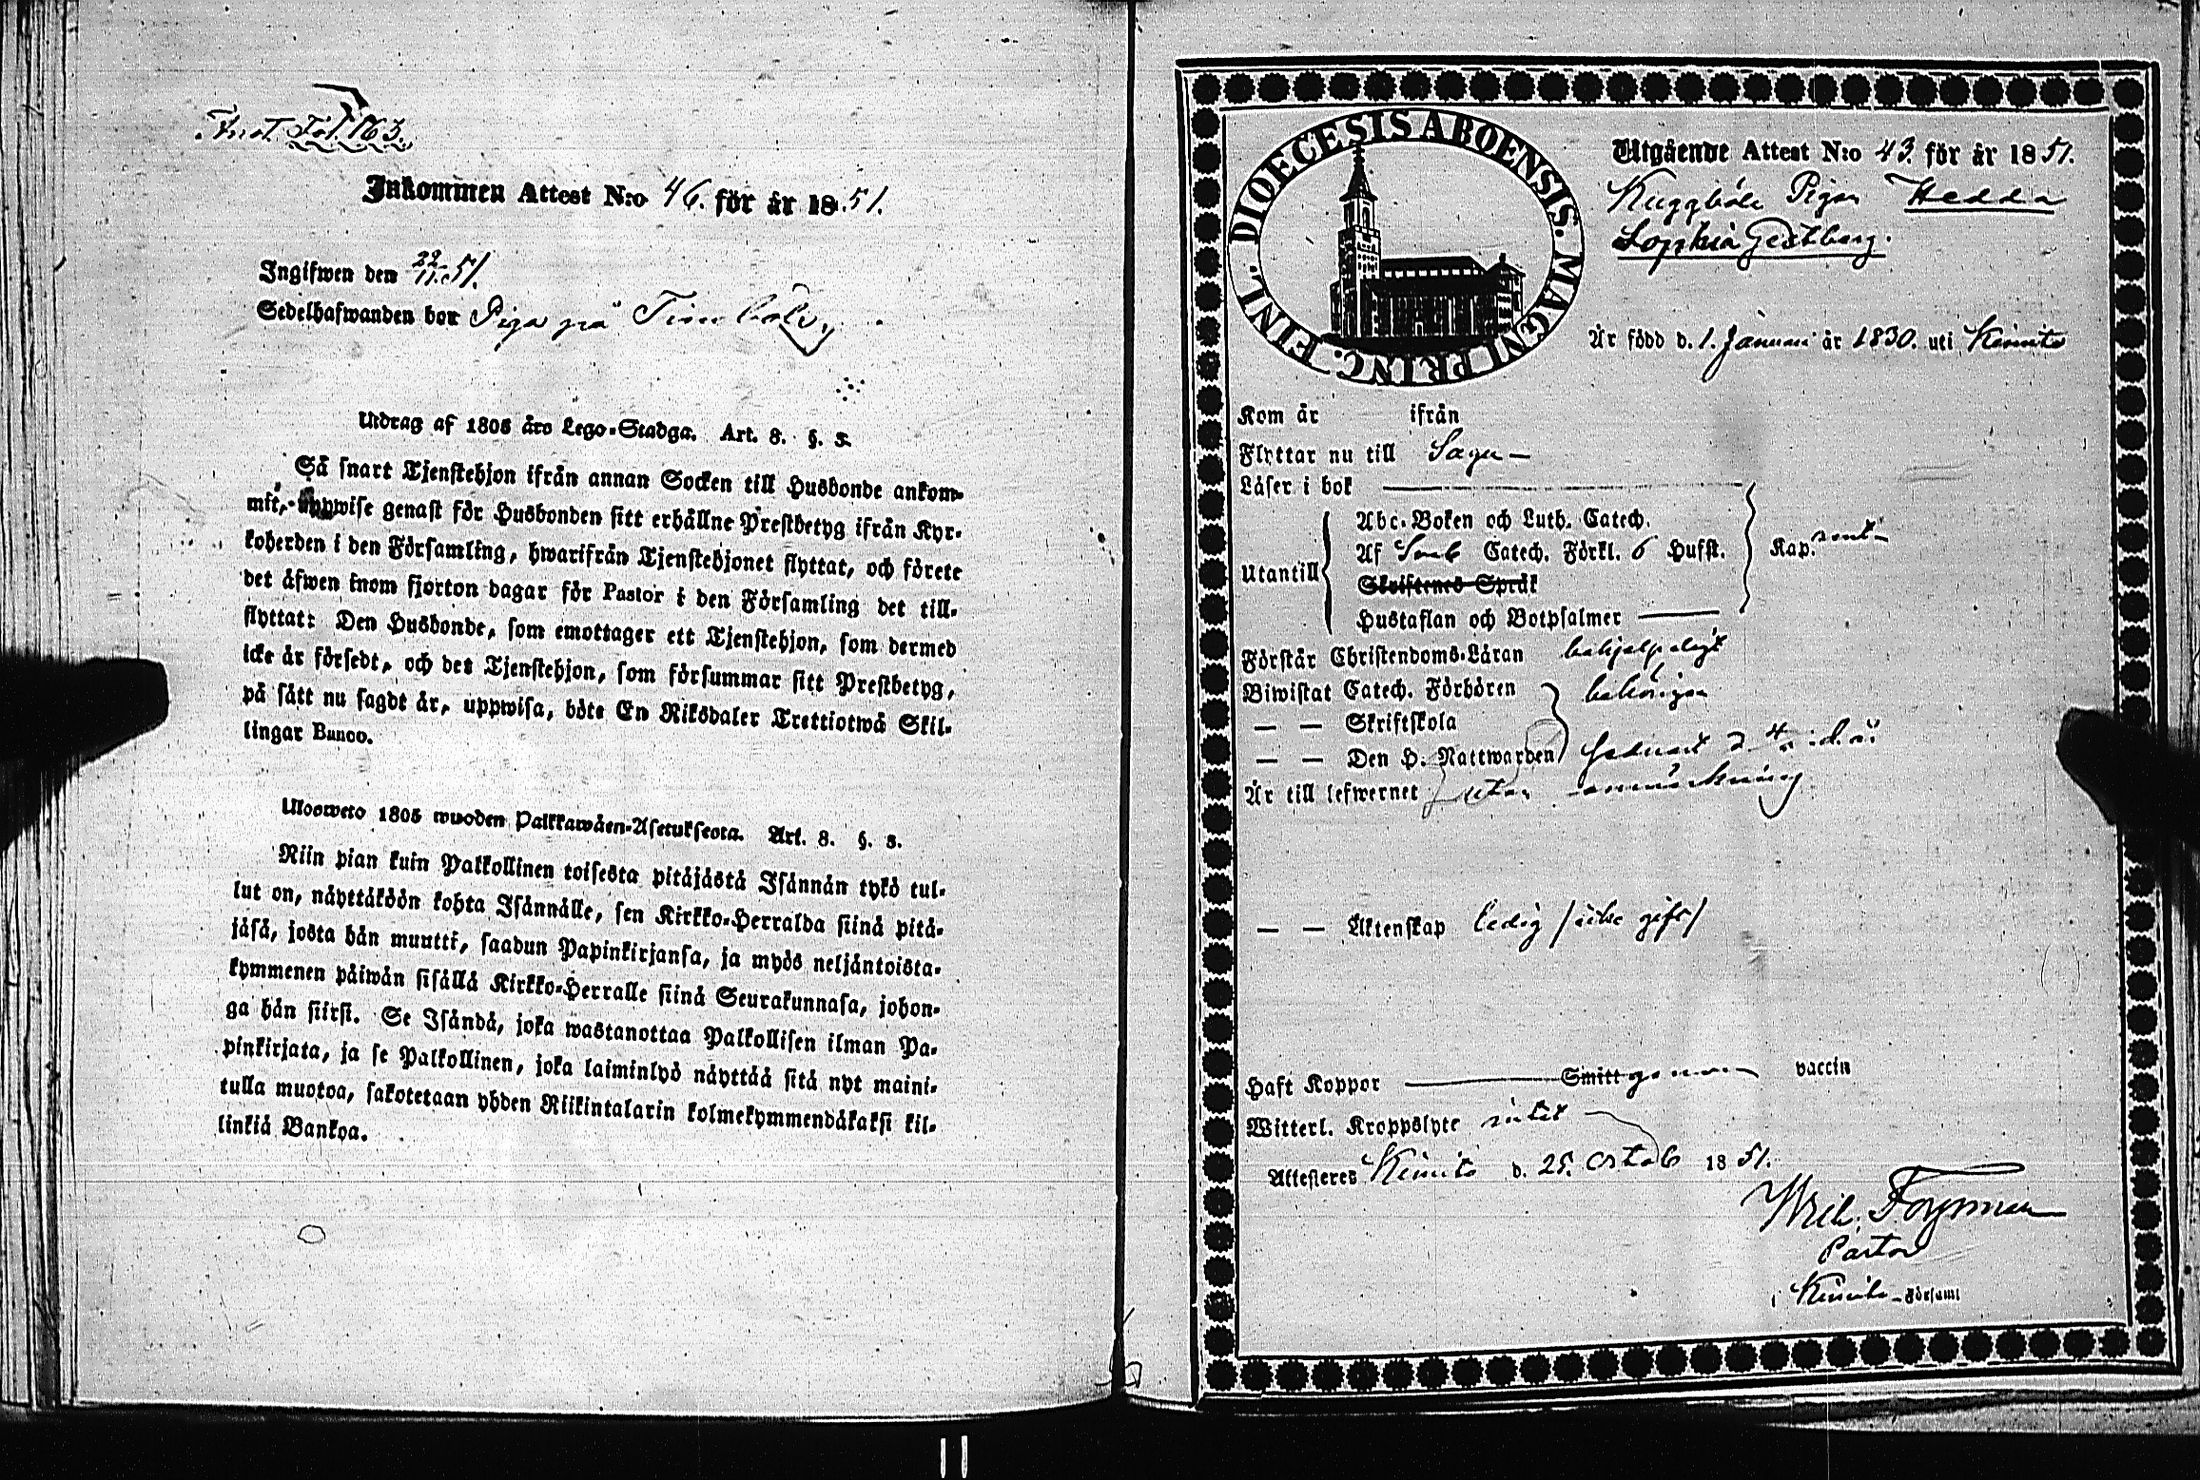 Inst. Fol. 163.
Inkommen Attest N:o 46. för år 1851.
Ingifwen den 22/11 51.
Sedelhafwanden bor Piga på
Utdrag af 1805 års Lego-Stadga. Art. 8. §. 3.
Så snart Tjenstehjon ifrån annan Socken till Husbonde ankom-
mit, uppwise genast för Husbonden sitt erhållne Prestbetyg ifrån Kyr-
koherden i den Församling, hwarifrån Tjenstehjonet flyttat, och förete
det äfwen inom fjorton dagar för Pastor i den Församling det till-
flyttat: Den Husbonde, som emottager ett Tjenstehjon, som dermed
icke är försedt, och det Tjenstehjon, som försummar sitt Prestbetyg,
på sått nu sagdt är, uppwisa, böte En Riksdaler Trettiotwå Skil-
lingar Banco.
Ulosweto 1805 wuoden Palkkawäen-Asetuksesta. Art. 8. §. 3.
Niin pian kuin Palkollinen toisesta pitäjästä Isännän tykö tul-
lut on, näyttäköön kohta Isännälle, sen Kirkko-Herralda siinä pitä-
jäsä, josta hän muutti, saadun Papinkirjansa, ja myös neljäntoista-
kymmenen päiwän sisällä Kirkko-Herralle siinä Seurakunnasa, johon-
ga hän siirsi. Se Isändä, joka wastanottaa Palkollisen ilman Pa-
pinkirjata, ja se Palkollinen, joka laiminlyö näyttää sitä nyt maini-
tulla muotoa, sakotetaan yhden Riikintalarin kolmekymmendäkaksi kil-
linkiä Bankoa.
DIOECESIS ABOENSIS. MAGNI PRINC. FINL.
Utgående Attest N:o 43. för år 1851.
Kuggböle Pigan Hedda
Sophia Gestberg.
Är född d. 1. Januari år 1830. uti Kimito
Kom år ifrån
Flyttar nu till Sagu
Läser i bok
Utantill
Abc-Boken och Luth. Catech.
Af Sveb Catech. Förkl. 6 Hufst.
Skriftenes Språk
Hustaflan och Botpsalmer
Kap.
Förstår Christendoms-Läran behjelpeligt
Biwistat Catech. Förhören behörigen
— — Skriftskola
— — Den H. Nattwarden
Är till lefwernet utan anmärkning
— — Äktenskap Ledig /icke gift/
Haft Koppor Smitt vaccin
Witterl. Kroppslyte intet
Attesteras Kimito d. 25. Octob 1851.
Wilh. Forsman
Pastor
i Kimito Församl